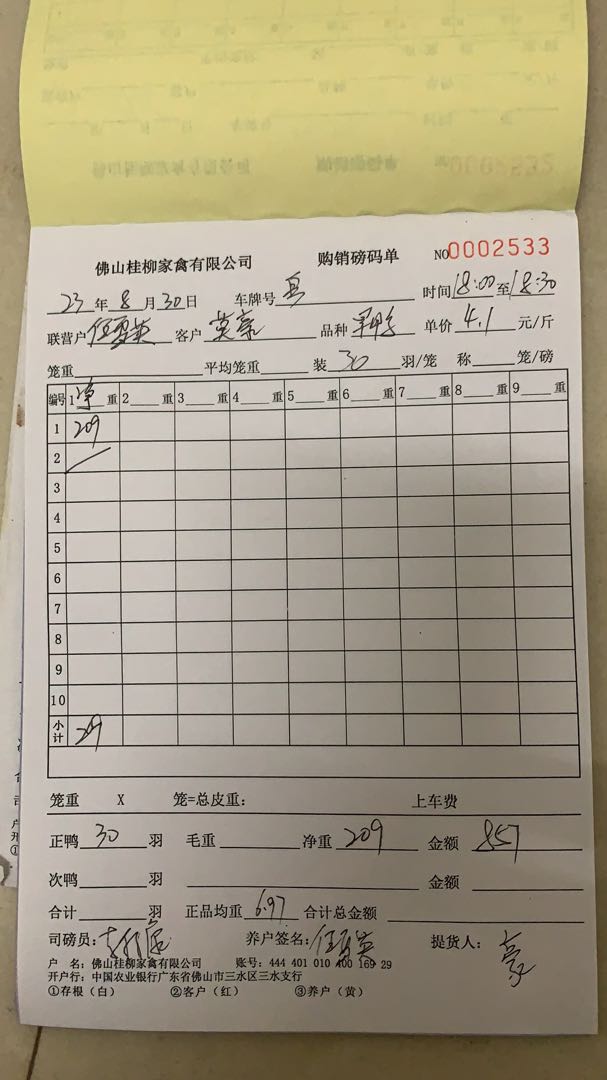 佛山桂柳家禽有限公司 购销磅码单 NO0002533
23年8月30日 车牌号 时间18:00至18:30
联营户伍夏英 客户莫豪 品种 单价4.1元/斤
笼重 平均笼重 装30羽/笼 称 笼/磅
编号 1净重 2重 3重 4重 5重 6重 7重 8重 9重
1 209
2
3
4
5
6
7
8
9
10
小计 209
笼重 X 笼=总皮重: 上车费
正鸭30羽 毛重 净重209 金额857
次鸭羽 金额
合计羽 正品均重6.97 合计总金额
司磅员: 养户签名:伍夏英 提货人:豪
户 名: 佛山桂柳家禽有限公司 账号: 444 401 010 400 169 29
开户行: 中国农业银行广东省佛山市三水区三水支行
①存根(白) ②客户(红) ③养户(黄)